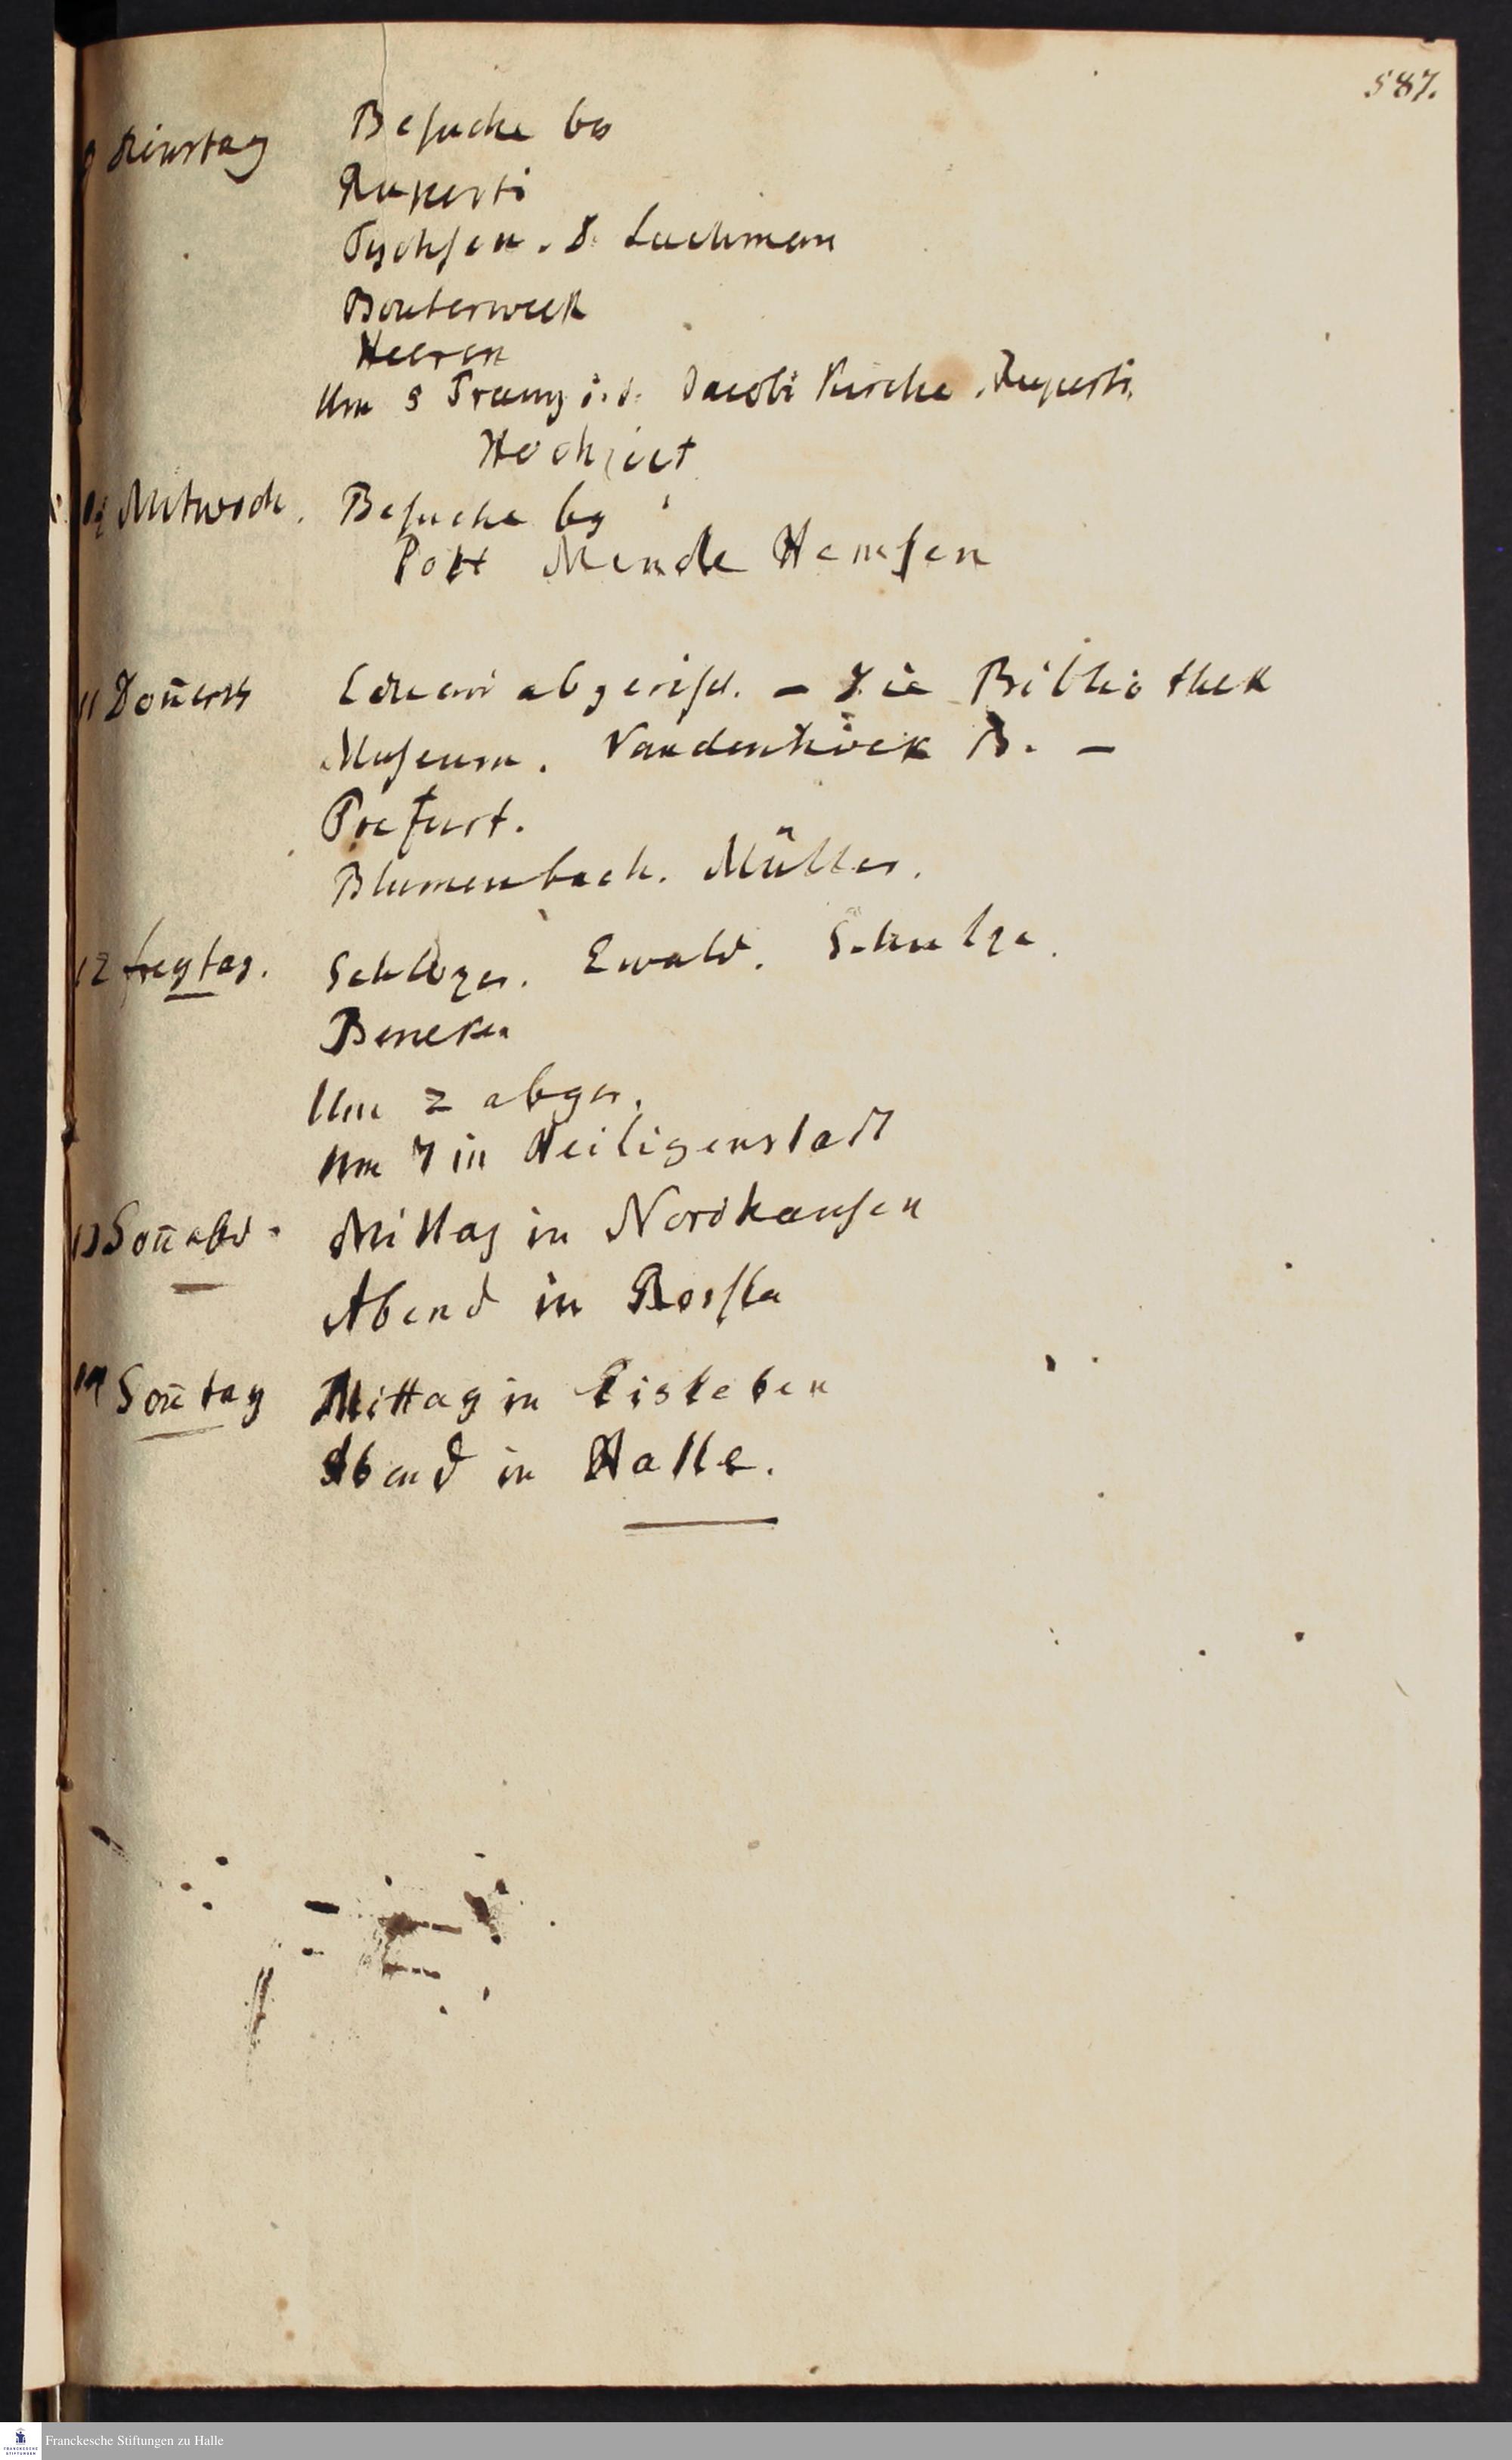 587.
9 Dinstag Besuche bey
Ruperti
Tychsen. D. Luchmann
Bouterweck
Heeren
Um 5 Trauung i. d. Jacobi Kirche. Ruperti
Hochzeit
10 Mitwoch. Besuche bey
Pott Mende Hemsen
11 Doñerst Eduard abgereist. – Die Bibliothek
Museum. Vandenhöck B. –
Blumenbach. Müller.
12 Freytag. Schlözer. Ewald. Schulze.
Beneken
Um 2 abger.
Um 7 in Heiligenstadt
13 Soñabd. Mittag in Nordhausen
Abend in Rossla
14 Soñtag Mittag in Eisleben
Abend in Halle.
Franckesche Stiftungen zu Halle